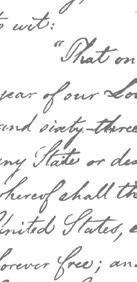 to wit:
"That on
year of our Lor
and sixty-three
any State or des
thereof shall th
United States, s
forever free; an